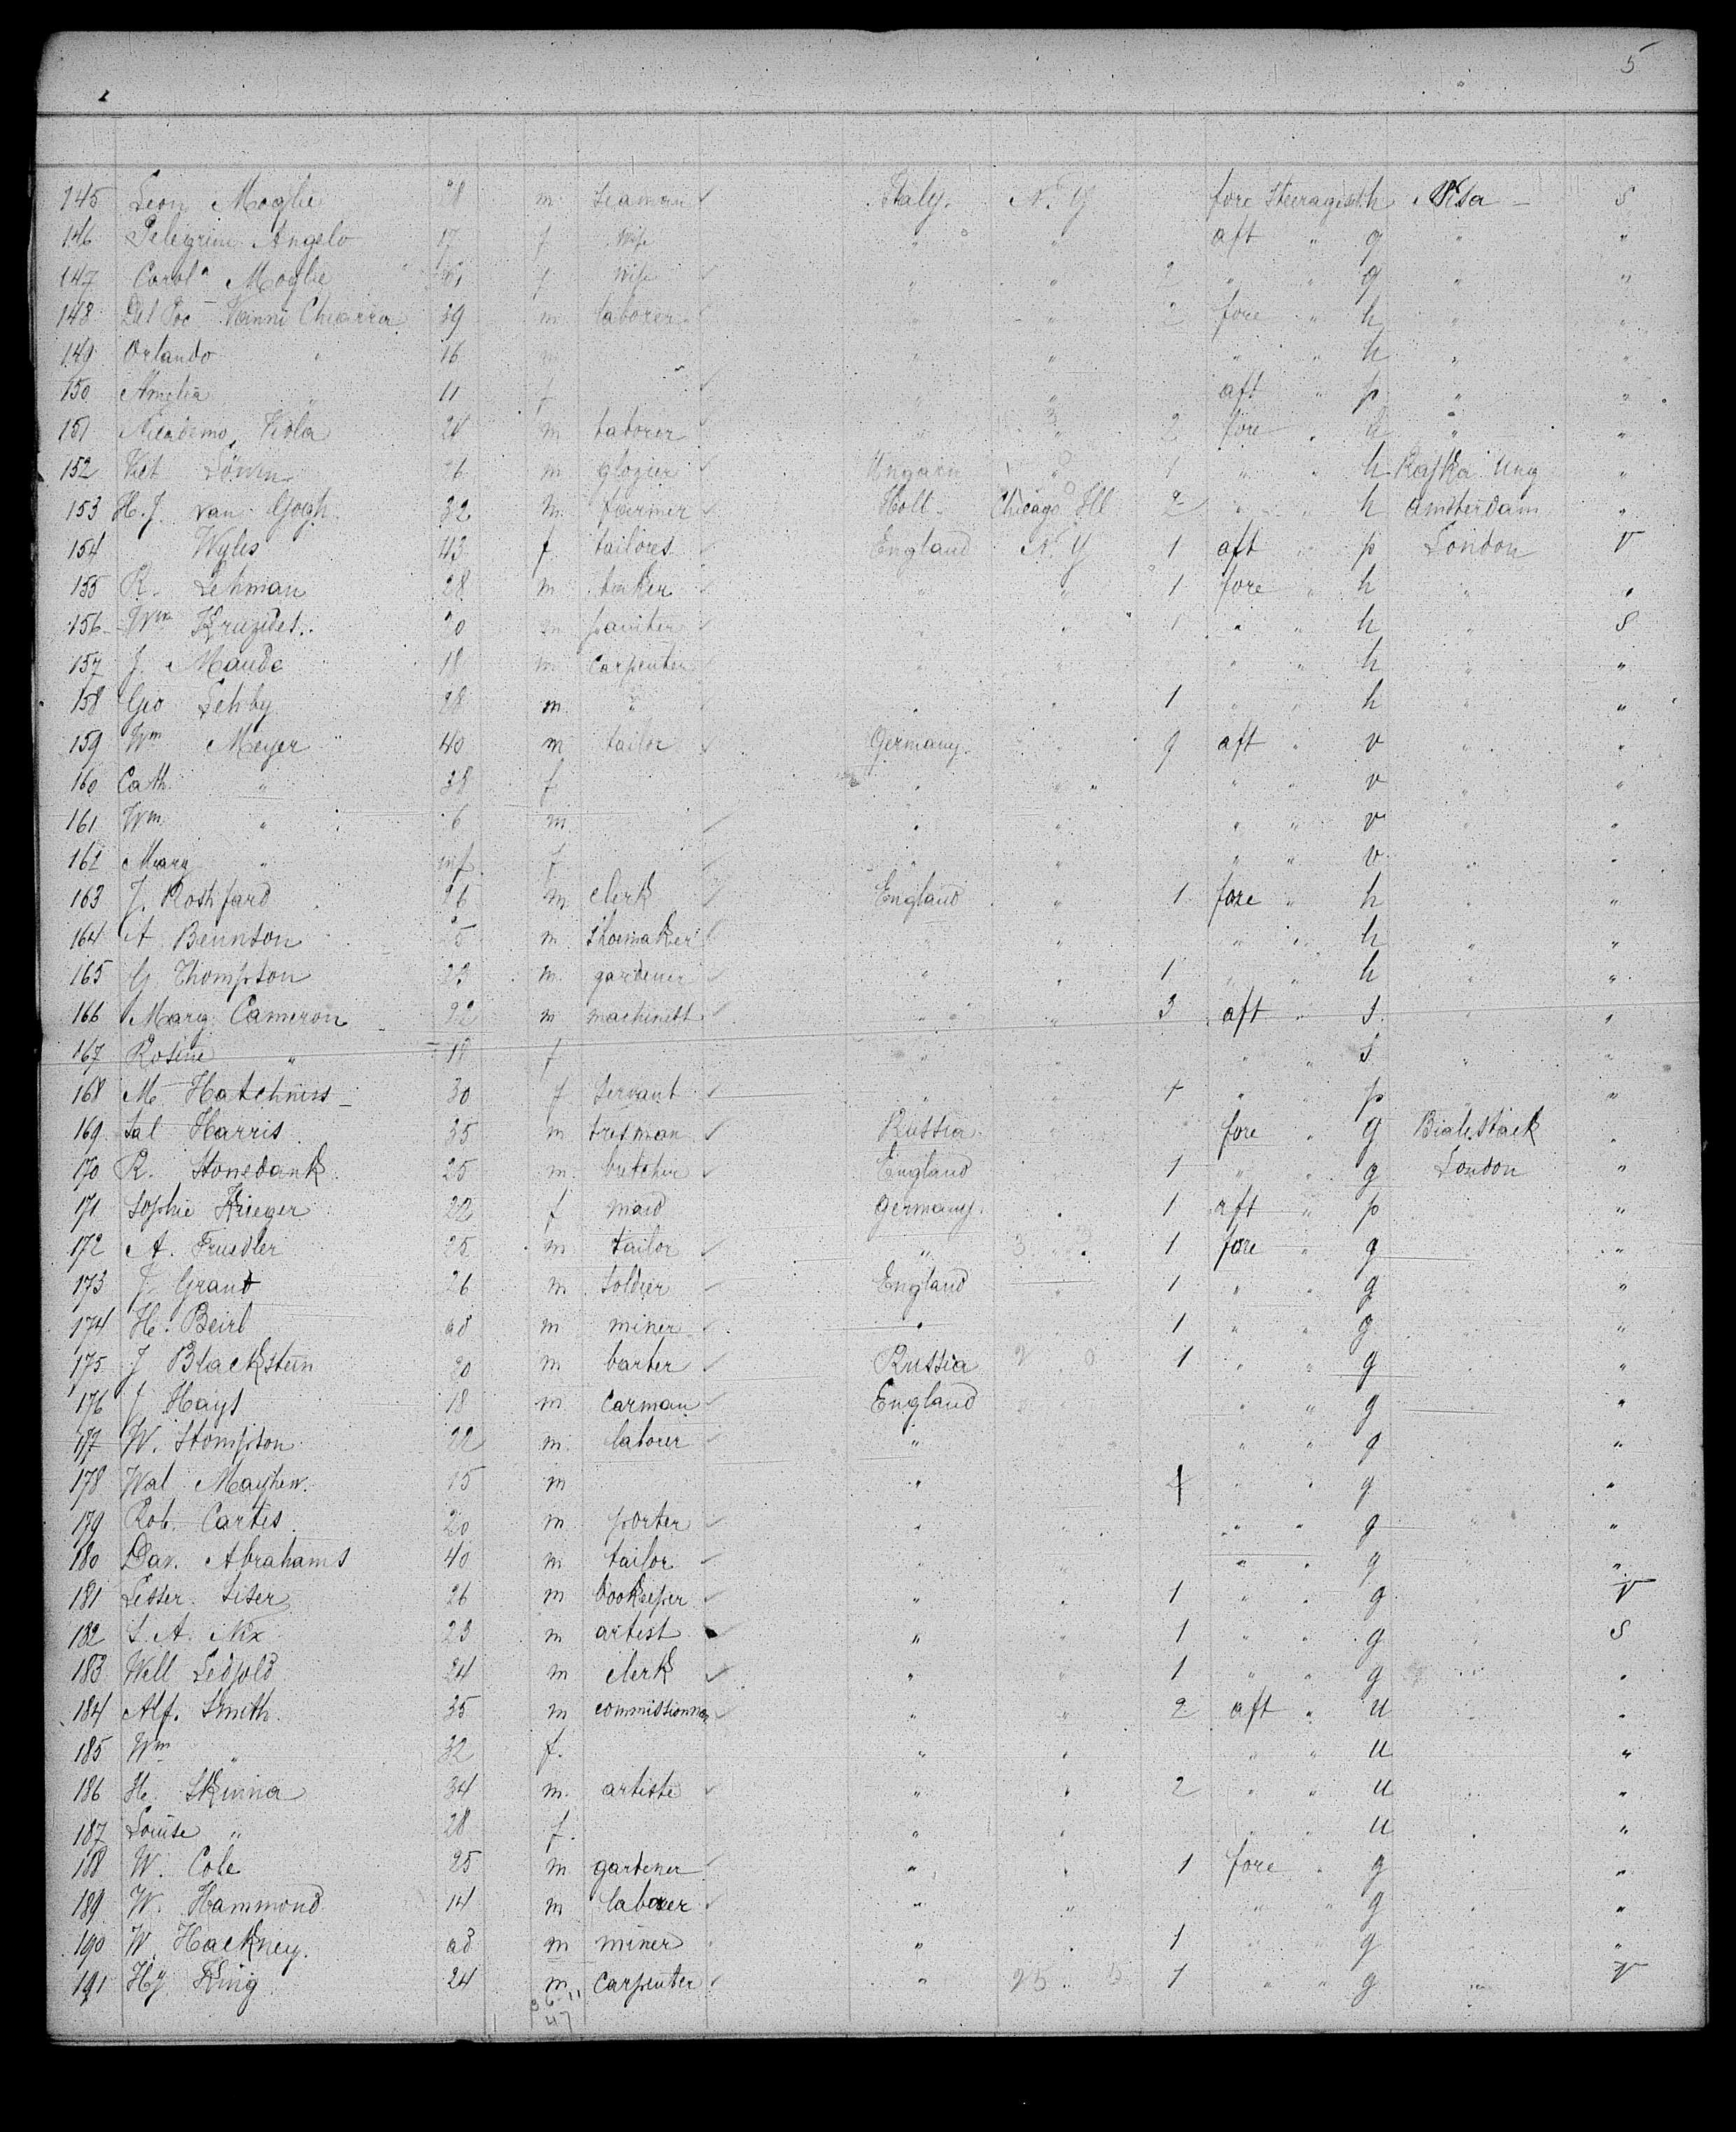 5
145 Leon Moglie 28 m seaman Italy. N.Y fore Steerage h Pisa - S
146 Pelegrini Angelo 17 f wife " " aft " g " "
147 Carola Moglie f wife " " 2 " " g " "
148 Del Poc Vanni Chiarra 39 m laborer " " 2 fore " h " "
149 Orlando " 16 m " " " " h " "
150 Amelia " 11 f " " aft " p " "
151 Nicademo, Viola 24 m laborer " " 2 fore " " "
152 Löwen 26 m glazier Ungarn " 1 " " h Rajka Ung "
153 H. J. van Gogh 32 m farmer Holl. Chicago Ill 2 " " h Amsterdam "
154 Wyles 43 f tailores England N.Y 1 aft " p London V
155 R. Lehman 28 m tinker " " 1 fore " h " "
156 Wm 20 m painter " " 1 " " h " S
157 J. Maude 18 m carpenter " " " " h " "
158 Geo Lehby 28 m " " " 1 " " h " "
159 Wm Meyer 40 m tailor Germany. " 9 aft " v " "
160 Cath. " 38 f " " " " v " "
161 Wm " 6 m " " " " v " "
161 Mary " inf f " " " " v " "
163 J. Roshfard 26 m clerk England " 1 fore " h " "
164 A Bennson 25 m shoemaker " " " " h " "
165 G. Thompson 22 m gardener " " 1 " " h " "
166 Mary Cameron 22 m machinest " " 3 aft " s " "
167 Rosine " 18 f " " " " s " "
168 M. Hatchniss 30 f servant " " 1 " " p " "
169 Sal Harris 35 m Russia " fore " g Bialistack "
170 R. Stonsbank 25 m butcher England " 1 " " g London "
171 Sophie Krieger 22 f maid Germany. " 1 aft " p " "
172 A. Fruedler 25 m tailor " " 1 fore " g " "
173 J. Grant 26 m soldier England " 1 " " g " "
174 H. Beirl ad m miner " " 1 " " g " "
175 J Blackstein 20 m barber Russia 1 " " g " "
176 J Hays 18 m carman England " " g " "
177 W. Stompson 22 m laborer " " " g " "
178 Wal Mayhew. 15 m " 1 " " g " "
179 Rob. Cartis 20 m porter " " " " g " "
180 Dav. Abrahams 40 m tailor " " " " g " "
181 Lesser Siser 26 m bookeeper " " 1 " " g " V
182 S. A. Nix 23 m artist " " 1 " " g " S
183 Will Ledjold 24 m clerk " " 1 " " g " "
184 Alf. Smith 35 m commissionner " " 2 aft " u " "
185 Wm " 32 f. " " " " u " "
186 H. Skinna 34 m. artiste " " 2 " " u " "
187 Louise " 28 f. " " " " u " "
188 W. Cole 25 m gardener " " 1 fore " g " "
189 W. Hammond 14 m laborer " " " " g " "
190 W. Hackney. ad m miner " " 1 " " g " "
191 Hy King 24 m carpenter " 1 " " g " V
36 11
47